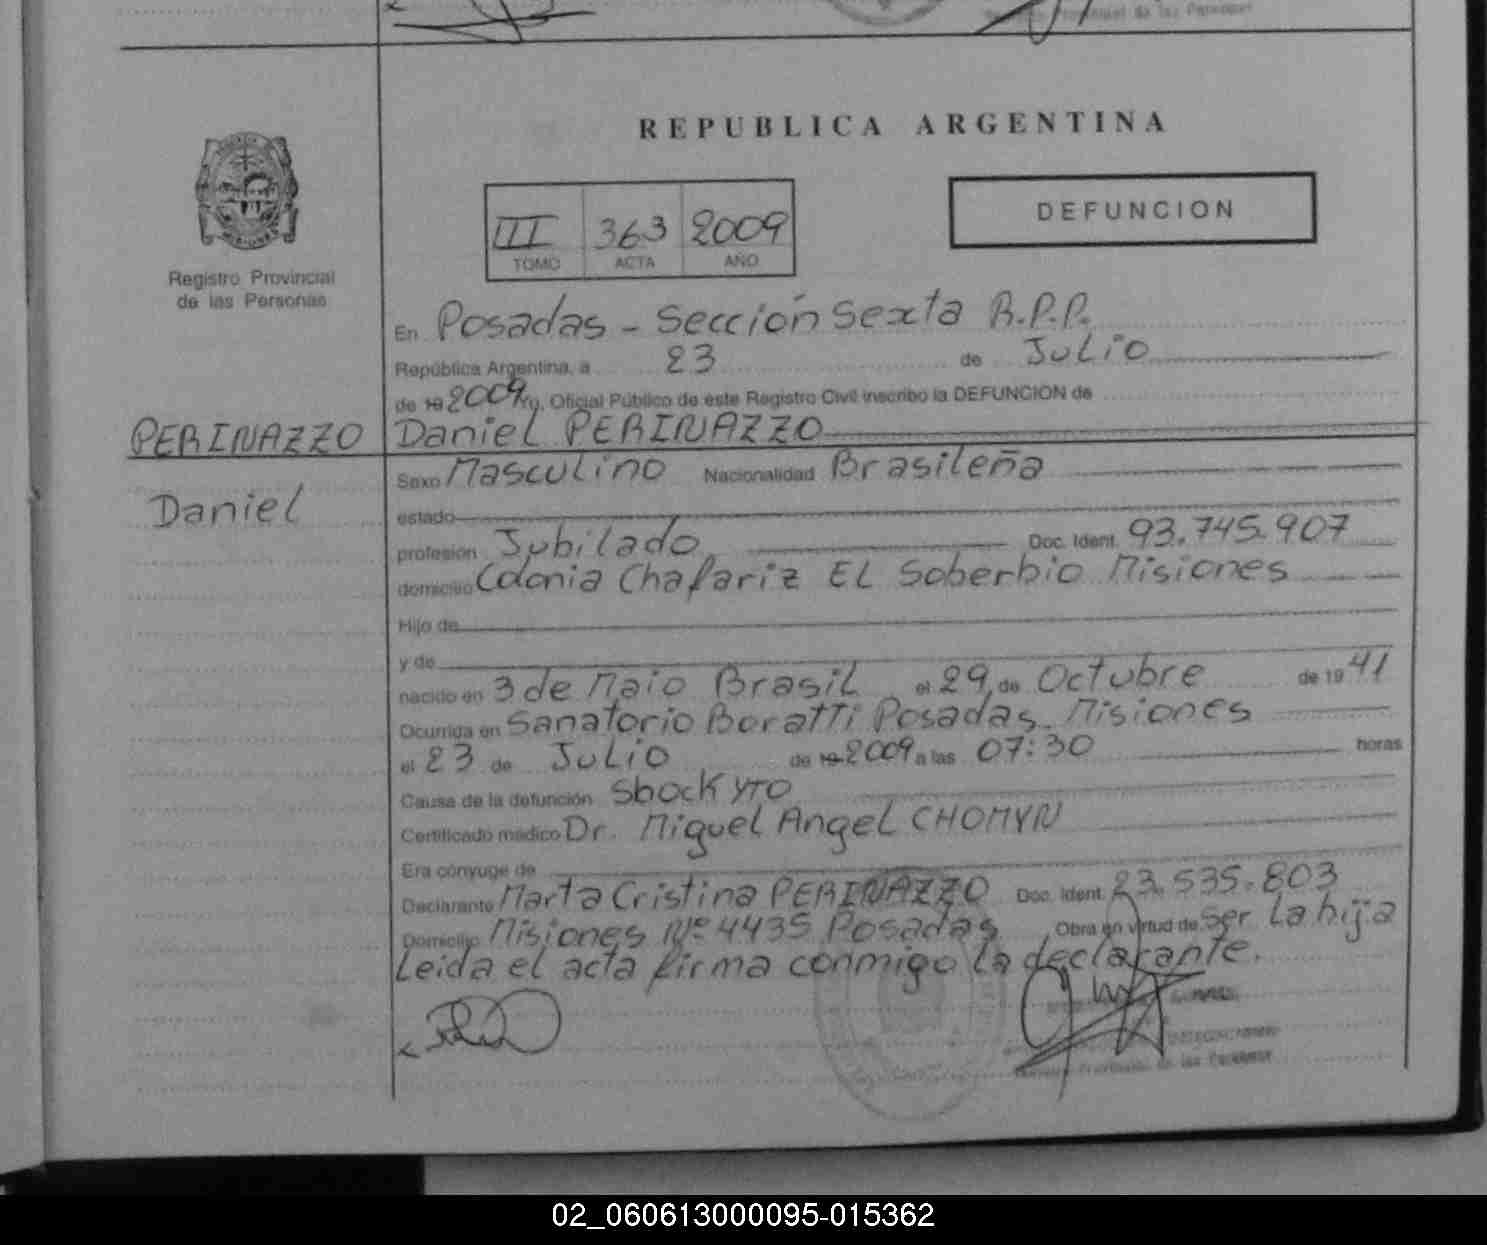 Provincial de las Personas
REPUBLICA ARGENTINA
III 363 2009
TOMO ACTA AÑO
DEFUNCION
Registro Provincial
de las Personas
En Posadas - Sección Sexta R.P.P.
República Argentina, a 23 de Julio
de 19 2009 yo, Oficial Público de este Registro Civil inscribo la DEFUNCION de
PERINAZZO Daniel PERINAZZO
Sexo Masculino Nacionalidad Brasileña
Daniel
estado
profesión Jubilado Doc. Ident. 93.745.907
domicilio Colonia Chafariz EL Soberbio Misiones
Hijo de
y de
nacido en 3 de Maio Brasil el 29 de Octubre de 19 41
Ocurrida en Sanatorio Boratti Posadas Misiones
el 23 de Julio de 19 2009 a las 07:30 horas
Causa de la defunción Shock YTO
Certificado médico Dr. Miguel Angel CHOMYN
Era cónyuge de
Declarante Marta Cristina PERINAZZO Doc. Ident. 23.535.803
Domicilio Misiones Nº 4435 Posadas Obra en virtud de Ser La hija
Leida el acta firma conmigo la declarante.
Provincial de las Personas
02_060613000095-015362